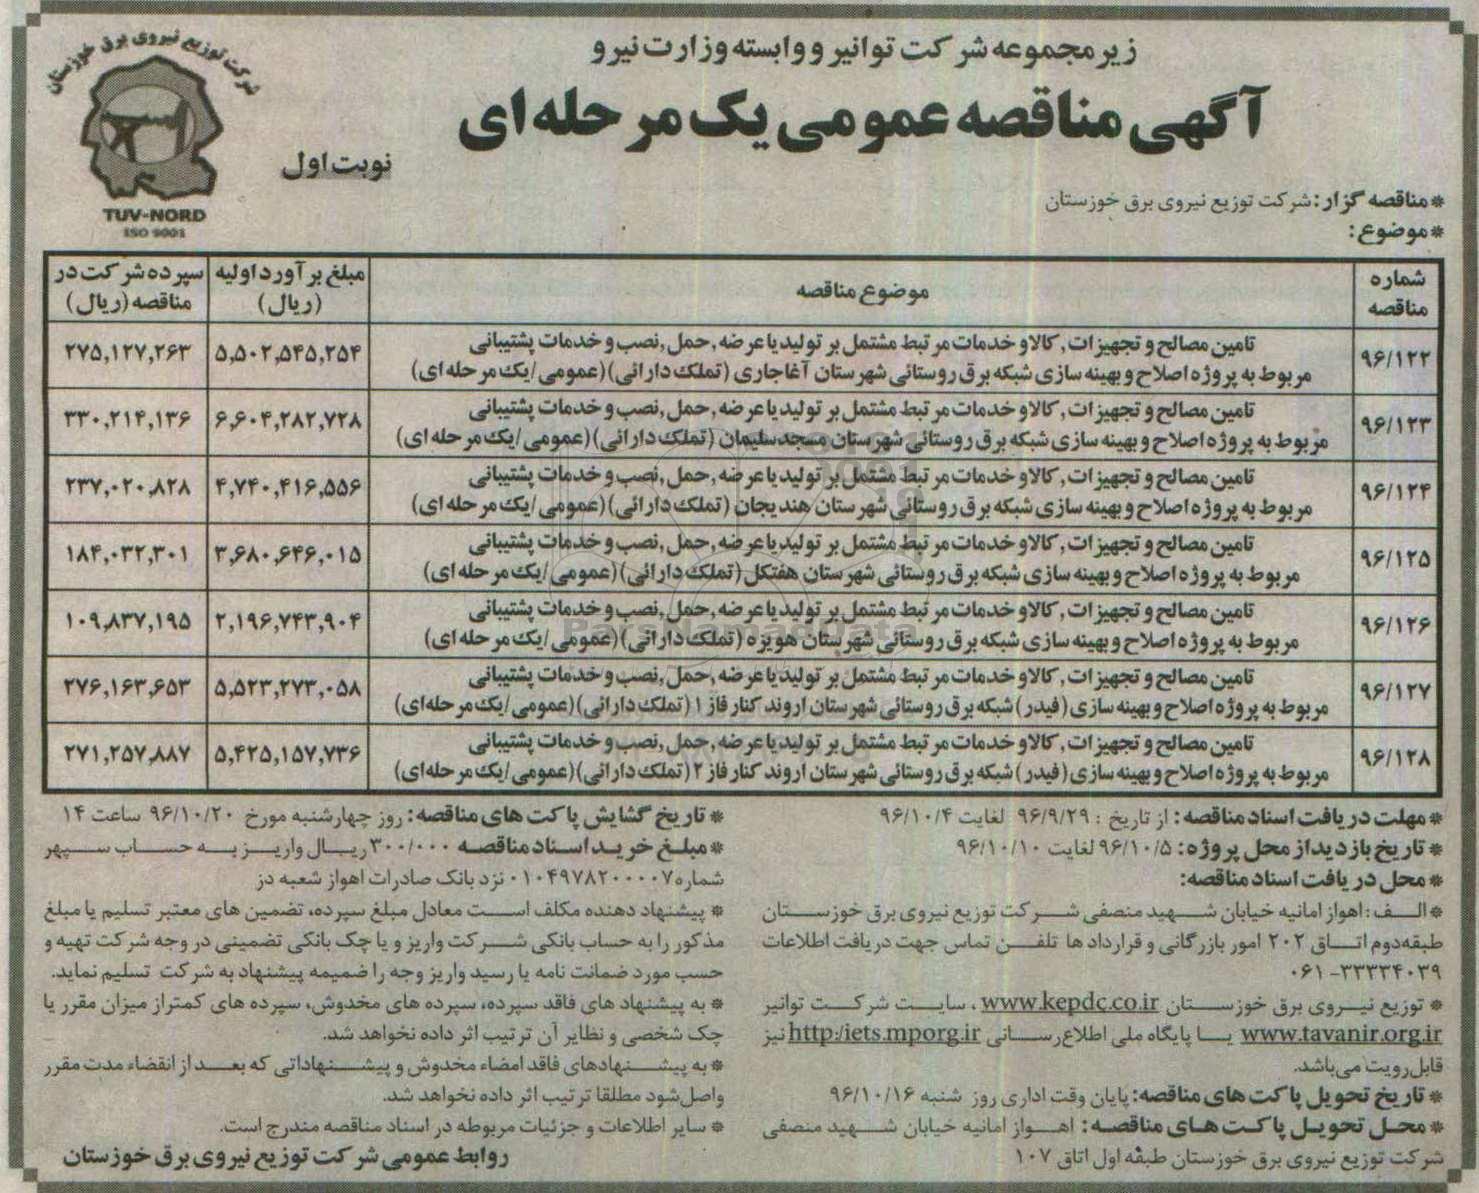 شرکت توزیع نیروی برق خوزستان
TUV-NORD
ISO 9001
زیرمجموعه شرکت توانیر و وابسته وزارت نیرو
آگهی مناقصه عمومی یک مرحله ای
نوبت اول
* مناقصه گزار: شرکت توزیع نیروی برق خوزستان
* موضوع:
شماره مناقصه | موضوع مناقصه | مبلغ برآورد اولیه (ریال) | سپرده شرکت در مناقصه (ریال)
۹۶/۱۲۲ | تامین مصالح و تجهیزات, کالا و خدمات مرتبط مشتمل بر تولید یا عرضه, حمل, نصب و خدمات پشتیبانی
مربوط به پروژه اصلاح و بهینه سازی شبکه برق روستائی شهرستان آغاجاری (تملک دارائی) (عمومی/یک مرحله ای) | ۵,۵۰۲,۵۴۵,۲۵۴ | ۲۷۵,۱۲۷,۲۶۳
۹۶/۱۲۳ | تامین مصالح و تجهیزات, کالا و خدمات مرتبط مشتمل بر تولید یا عرضه, حمل, نصب و خدمات پشتیبانی
مربوط به پروژه اصلاح و بهینه سازی شبکه برق روستائی شهرستان مسجدسلیمان (تملک دارائی) (عمومی/یک مرحله ای) | ۶,۶۰۴,۲۸۲,۷۲۸ | ۳۳۰,۲۱۴,۱۳۶
۹۶/۱۲۴ | تامین مصالح و تجهیزات, کالا و خدمات مرتبط مشتمل بر تولید یا عرضه, حمل, نصب و خدمات پشتیبانی
مربوط به پروژه اصلاح و بهینه سازی شبکه برق روستائی شهرستان هندیجان (تملک دارائی) (عمومی/یک مرحله ای) | ۴,۷۴۰,۴۱۶,۵۵۶ | ۲۳۷,۰۲۰,۸۲۸
۹۶/۱۲۵ | تامین مصالح و تجهیزات, کالا و خدمات مرتبط مشتمل بر تولید یا عرضه, حمل, نصب و خدمات پشتیبانی
مربوط به پروژه اصلاح و بهینه سازی شبکه برق روستائی شهرستان هفتکل (تملک دارائی) (عمومی/یک مرحله ای) | ۳,۶۸۰,۶۴۶,۰۱۵ | ۱۸۴,۰۳۲,۳۰۱
۹۶/۱۲۶ | تامین مصالح و تجهیزات, کالا و خدمات مرتبط مشتمل بر تولید یا عرضه, حمل, نصب و خدمات پشتیبانی
مربوط به پروژه اصلاح و بهینه سازی شبکه برق روستائی شهرستان هویزه (تملک دارائی) (عمومی/یک مرحله ای) | ۲,۱۹۶,۷۴۳,۹۰۴ | ۱۰۹,۸۳۷,۱۹۵
۹۶/۱۲۷ | تامین مصالح و تجهیزات, کالا و خدمات مرتبط مشتمل بر تولید یا عرضه, حمل, نصب و خدمات پشتیبانی
مربوط به پروژه اصلاح و بهینه سازی (فیدر) شبکه برق روستائی شهرستان اروند کنار فاز ۱ (تملک دارائی) (عمومی/یک مرحله ای) | ۵,۵۲۳,۲۷۳,۰۵۸ | ۲۷۶,۱۶۳,۶۵۳
۹۶/۱۲۸ | تامین مصالح و تجهیزات, کالا و خدمات مرتبط مشتمل بر تولید یا عرضه, حمل, نصب و خدمات پشتیبانی
مربوط به پروژه اصلاح و بهینه سازی (فیدر) شبکه برق روستائی شهرستان اروند کنار فاز ۲ (تملک دارائی) (عمومی/یک مرحله ای) | ۵,۴۲۵,۱۵۷,۷۳۶ | ۲۷۱,۲۵۷,۸۸۷
* مهلت دریافت اسناد مناقصه: از تاریخ : ۹۶/۹/۲۹ لغایت ۹۶/۱۰/۴
* تاریخ بازدید از محل پروژه: ۹۶/۱۰/۵ لغایت ۹۶/۱۰/۱۰
* محل دریافت اسناد مناقصه:
* الف: اهواز امانیه خیابان شهید منصفی شرکت توزیع نیروی برق خوزستان
طبقه دوم اتاق ۲۰۲ امور بازرگانی و قرارداد ها تلفن تماس جهت دریافت اطلاعات
۰۶۱-۳۳۳۳۴۰۳۹
* توزیع نیروی برق خوزستان www.kepdc.co.ir ، سایت شرکت توانیر
www.tavanir.org.ir یا پایگاه ملی اطلاع رسانی http:/iets.mporg.ir نیز
قابل رویت می باشد.
* تاریخ تحویل پاکت های مناقصه: پایان وقت اداری روز شنبه ۹۶/۱۰/۱۶
* محل تحویل پاکت های مناقصه: اهواز امانیه خیابان شهید منصفی
شرکت توزیع نیروی برق خوزستان طبقه اول اتاق ۱۰۷
* تاریخ گشایش پاکت های مناقصه: روز چهارشنبه مورخ ۹۶/۱۰/۲۰ ساعت ۱۴
* مبلغ خرید اسناد مناقصه ۳۰۰/۰۰۰ ریال واریز به حساب سپهر
شماره ۰۱۰۴۹۷۸۲۰۰۰۰۷ نزد بانک صادرات اهواز شعبه دز
* پیشنهاد دهنده مکلف است معادل مبلغ سپرده، تضمین های معتبر تسلیم یا مبلغ
مذکور را به حساب بانکی شرکت واریز و یا چک بانکی تضمینی در وجه شرکت تهیه و
حسب مورد ضمانت نامه یا رسید واریز وجه را ضمیمه پیشنهاد به شرکت تسلیم نماید.
* به پیشنهاد های فاقد سپرده، سپرده های مخدوش، سپرده های کمتر از میزان مقرر یا
چک شخصی و نظایر آن ترتیب اثر داده نخواهد شد.
* به پیشنهادهای فاقد امضاء مخدوش و پیشنهاداتی که بعد از انقضاء مدت مقرر
واصل شود مطلقا ترتیب اثر داده نخواهد شد.
* سایر اطلاعات و جزئیات مربوطه در اسناد مناقصه مندرج است.
روابط عمومی شرکت توزیع نیروی برق خوزستان